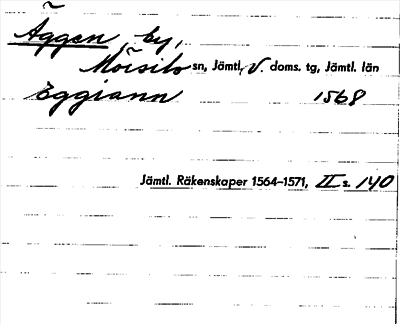 Äggen, by,
Mörsils sn, Jämtl. V. doms. tg, Jämtl. län
Eggiann 1568
Jämtl. Räkenskaper 1564–1571, II s. 140